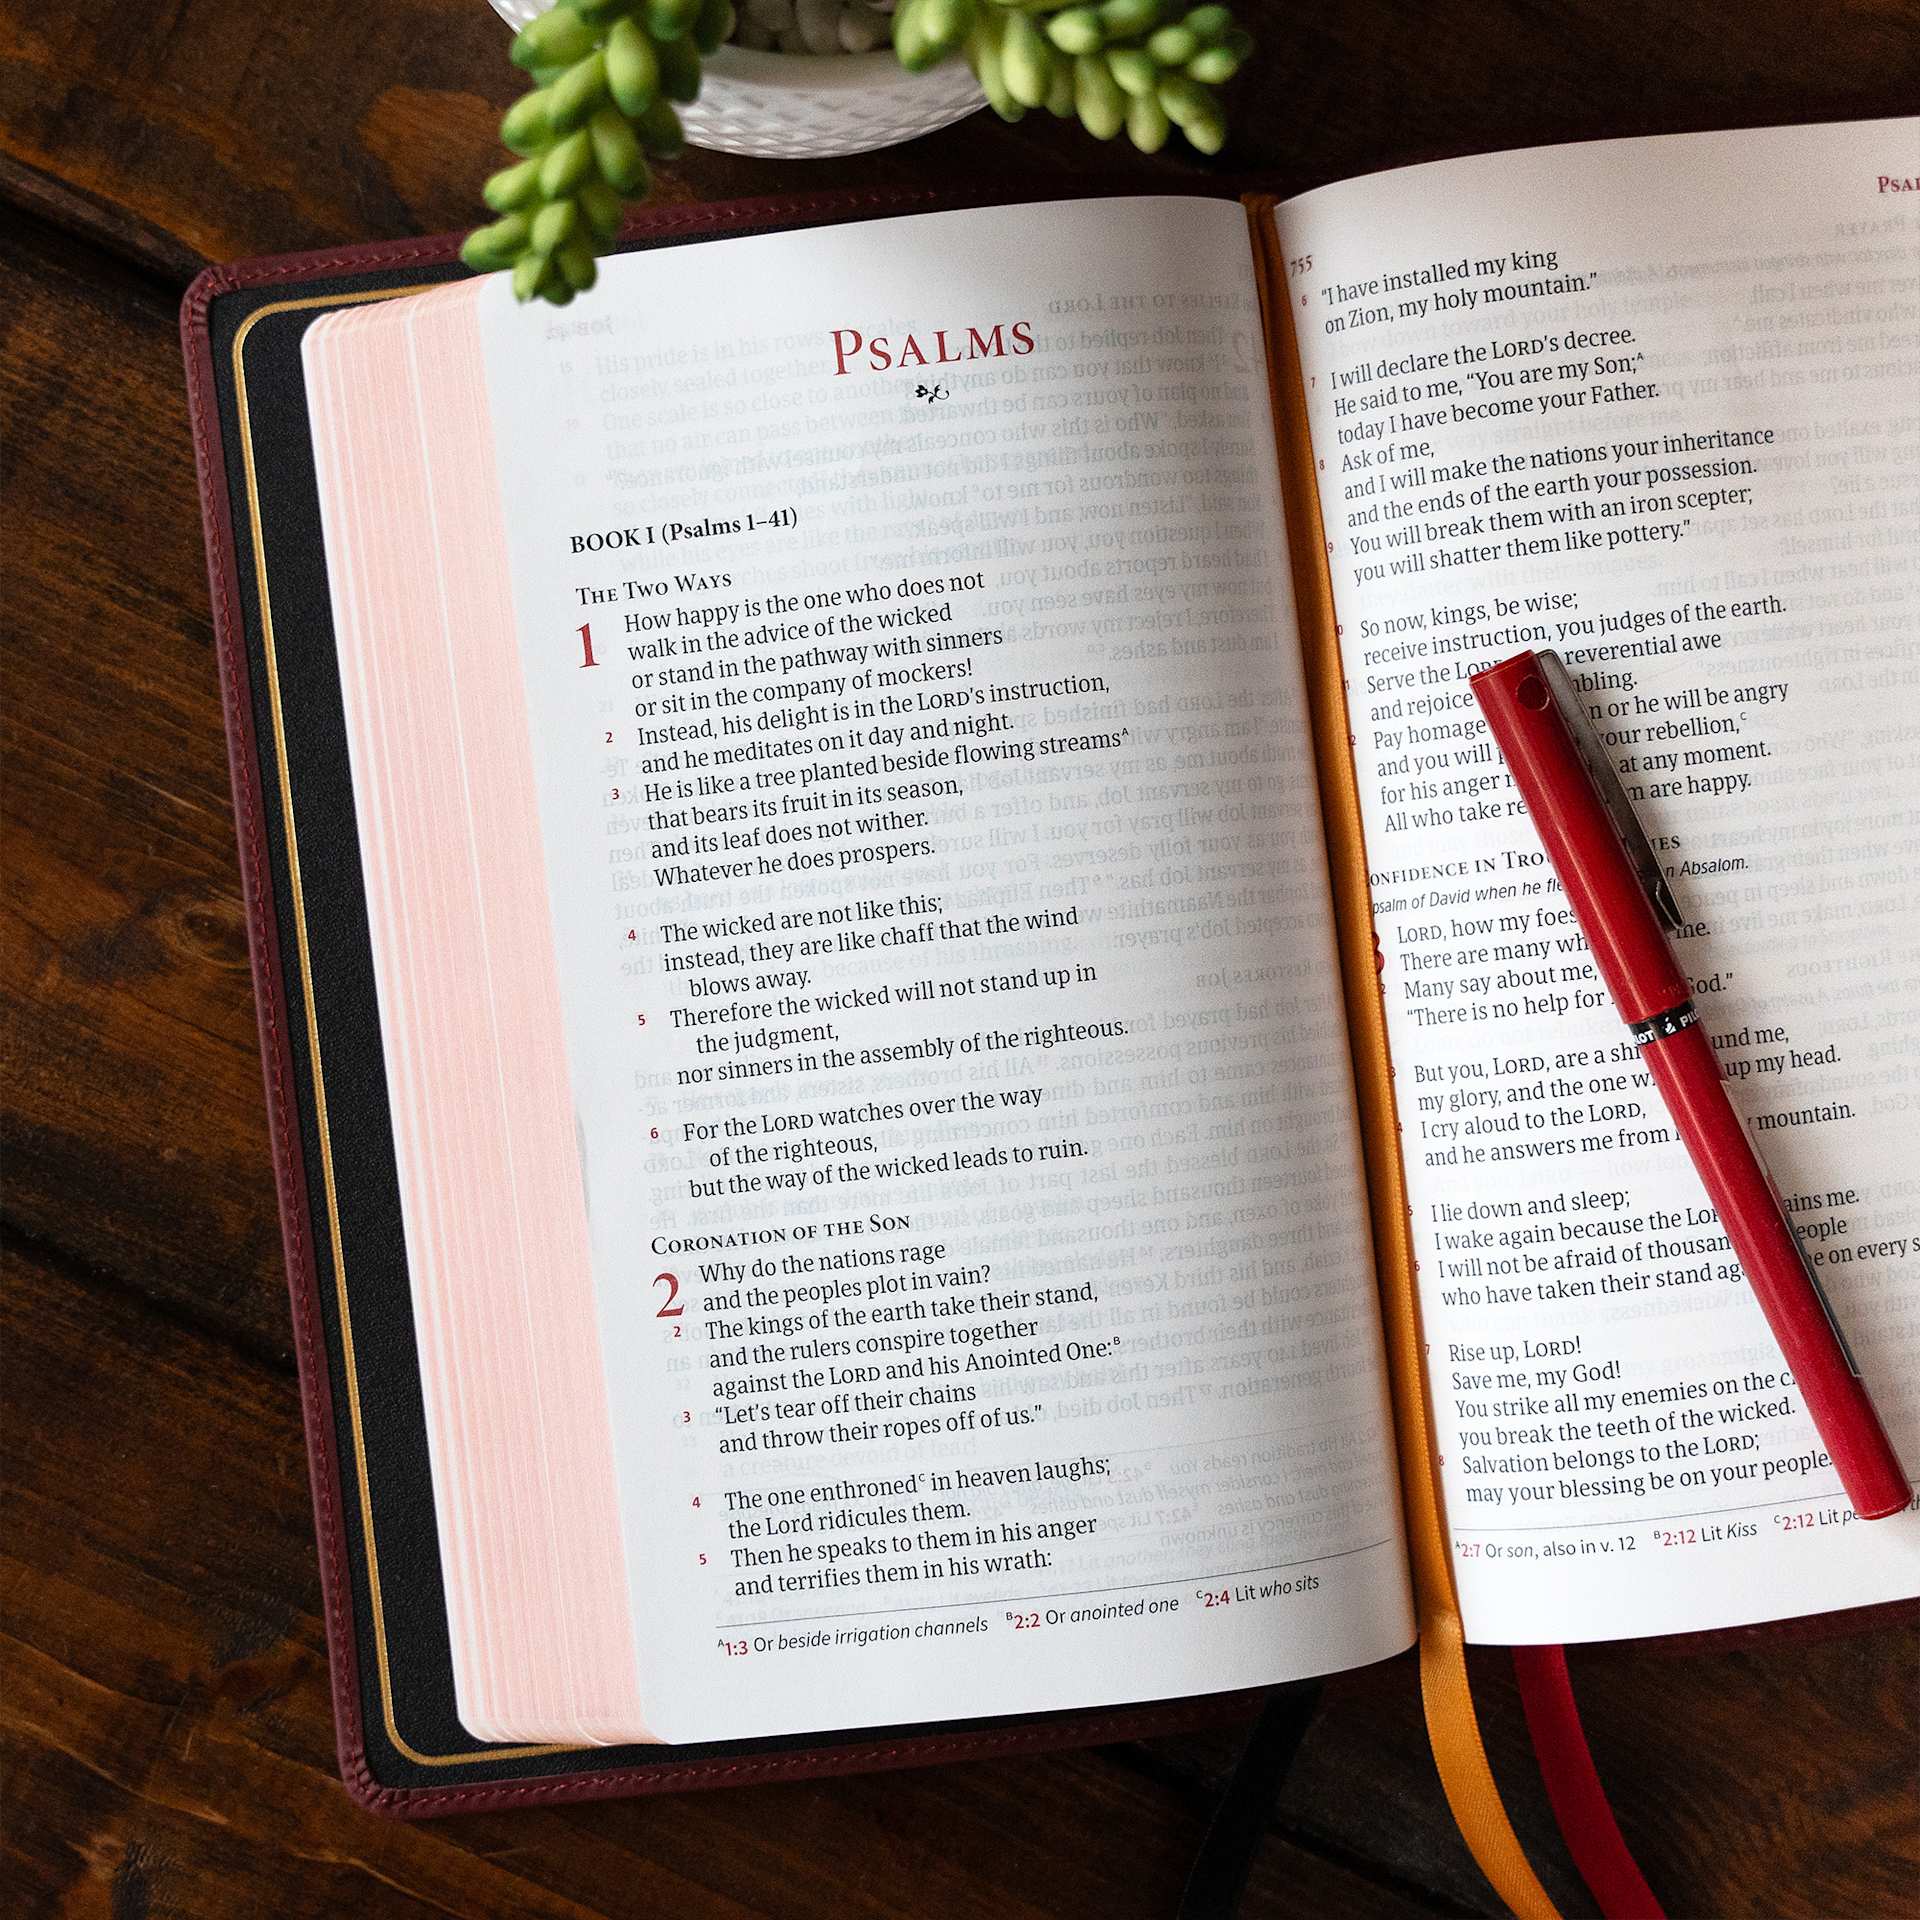 PSALMS
BOOK I (Psalms 1–41)
THE TWO WAYS
1 How happy is the one who does not
walk in the advice of the wicked
or stand in the pathway with sinners
or sit in the company of mockers!
2 Instead, his delight is in the LORD's instruction,
and he meditates on it day and night.
3 He is like a tree planted beside flowing streamsᴬ
that bears its fruit in its season,
and its leaf does not wither.
Whatever he does prospers.
4 The wicked are not like this;
instead, they are like chaff that the wind
blows away.
5 Therefore the wicked will not stand up in
the judgment,
nor sinners in the assembly of the righteous.
6 For the LORD watches over the way
of the righteous,
but the way of the wicked leads to ruin.
CORONATION OF THE SON
2 Why do the nations rage
and the peoples plot in vain?
2 The kings of the earth take their stand,
and the rulers conspire together
against the LORD and his Anointed One:ᴮ
3 “Let's tear off their chains
and throw their ropes off of us.”
4 The one enthronedᶜ in heaven laughs;
the Lord ridicules them.
5 Then he speaks to them in his anger
and terrifies them in his wrath:
ᴬ1:3 Or beside irrigation channels ᴮ2:2 Or anointed one ᶜ2:4 Lit who sits
755
6 “I have installed my king
on Zion, my holy mountain.”
7 I will declare the LORD's decree.
He said to me, “You are my Son;ᴬ
today I have become your Father.
8 Ask of me,
and I will make the nations your inheritance
and the ends of the earth your possession.
9 You will break them with an iron scepter;
you will shatter them like pottery.”
So now, kings, be wise;
receive instruction, you judges of the earth.
Serve the reverential awe
and rejoice
Pay homage or he will be angry
and you will your rebellion,ᶜ
for his anger at any moment.
All who take are happy.
IN
psalm of David when he Absalom.
LORD, how my foes
There are many me.
2 Many say about me,
“There is no help for God.”
3 But you, LORD, are a me,
my glory, and the one up my head.
4 I cry aloud to the LORD,
and he answers me from mountain.
5 I lie down and sleep;
I wake again because the me.
6 I will not be afraid of
who have taken their stand on every
7 Rise up, LORD!
Save me, my God!
You strike all my enemies on the
you break the teeth of the wicked.
8 Salvation belongs to the LORD;
may your blessing be on your people.
ᴬ2:7 Or son, also in v. 12 ᴮ2:12 Lit Kiss ᶜ2:12 Lit